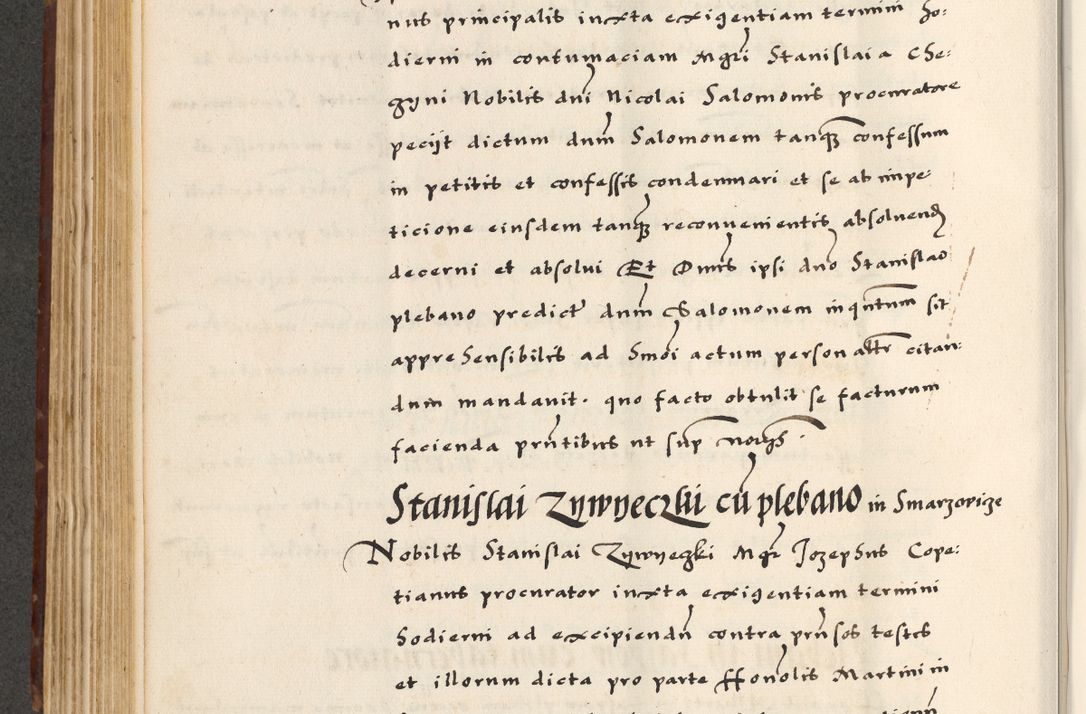 nus principalis iuxta exigentiam termini ho:
dierni in contumaciam Mgri Stanislai a Che:
gyni Nobilis dni Nicolai Salomonis procuratore
pecijt dictum dnm Salomonem tanq3 confessum
in petitis et confessis condemnari et se ab impe:
ticione eiusdem tanq3 reconvenientis absoluend
decerni et absolui Et Dnus ipsi dno Stanislao
plebano predict dnm Salomonem inqntum sit
apprehensibilis ad hmoi actum personalr citan:
dum mandauit. quo facto obtulit se facturum
facienda prntibus ut sup
Stanislai Zywyeczkii cu plebano in Smarzowize
Nobilis Stanislai Zywyeczki Mgr Jozephus Cope:
tianus procurator iuxta exigentiam termini
hodierni ad excipiendu contra prnsos testes
et illorum dicta pro parte Honolis Martini in